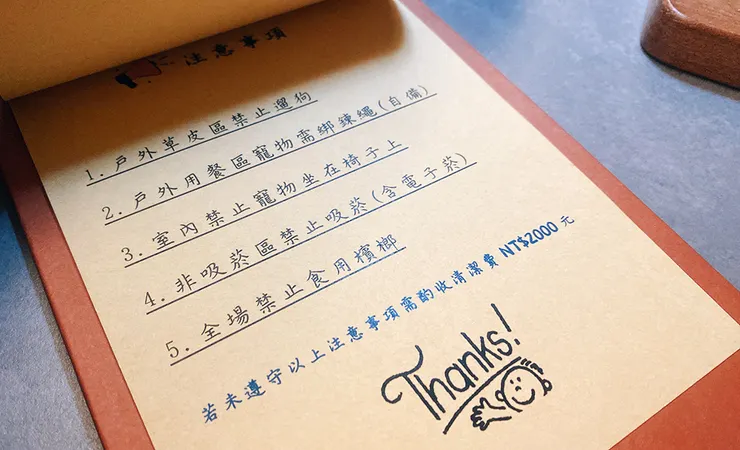 注意事項
1. 戶外草皮區禁止遛狗
2. 戶外用餐區寵物需綁鍊繩(自備)
3. 室內禁止寵物坐在椅子上
4. 非吸菸區禁止吸菸(含電子菸)
5. 全場禁止食用檳榔
若未遵守以上注意事項需酌收清潔費 NT$2000 元
Thanks!